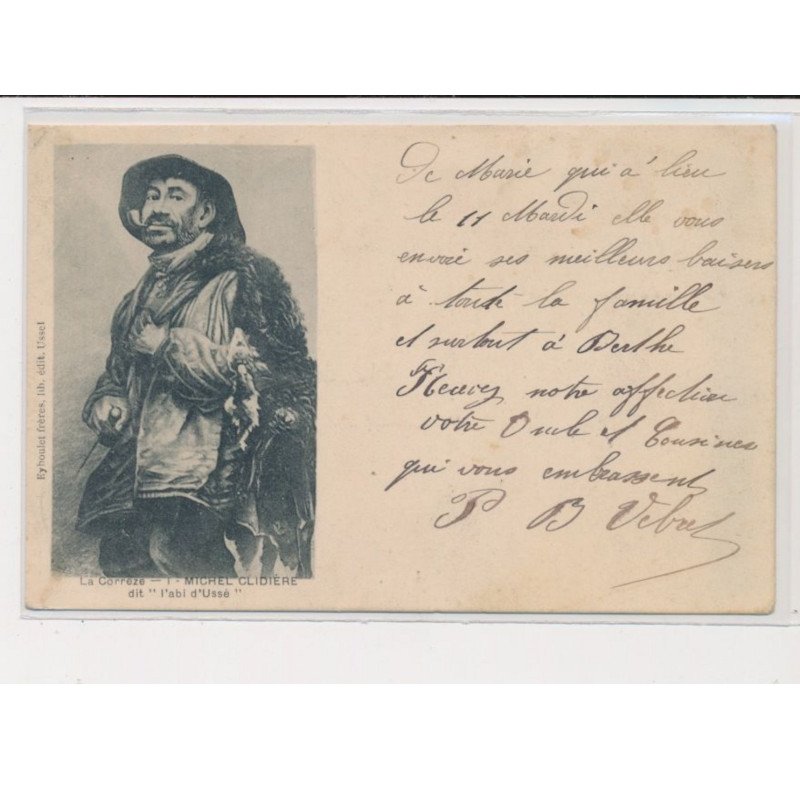 De Marie qui a' lieu
le 11 Mardi elle vous
envoie ses meilleurs baisers
à toute la famille
et surtout à Berthe
notre affection
votre Oncle et Cousines
qui vous embrassent
P B
Eyboulet frères, lib. édit. Ussel
La Corrèze — 1 - MICHEL CLIDIÈRE
dit " l'abl d'Ussé "